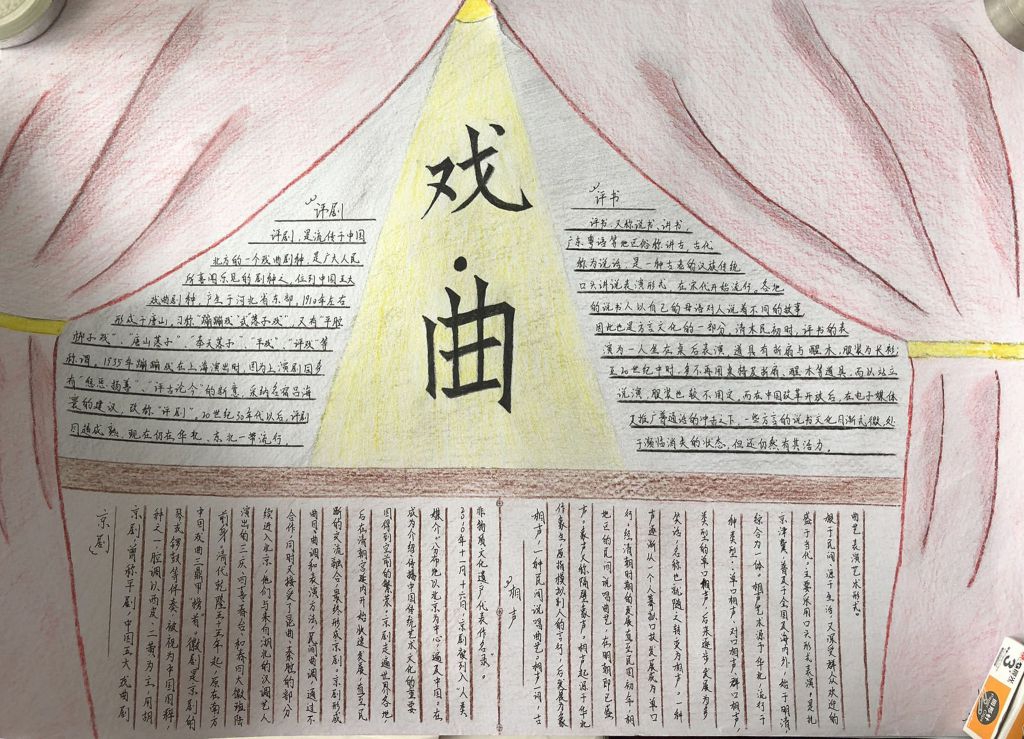 戏
·
曲
评剧
评剧,是流传于中国
北方的一个戏曲剧种,是广大人民
所喜闻乐见的剧种之一,位列中国五大
戏曲剧种,产生于河北省东部,1910年左右
形成于唐山,习称“蹦蹦戏”或“落子戏”,又有“平腔
梆子戏”、“唐山落子”、“奉天落子”、“平戏”、“评戏”等
称谓。1935年蹦蹦戏在上海演出时,因为上演剧目多
有“惩恶扬善”、“评古论今”的新意,采纳名宿吕海
寰的建议,改称“评剧”。20世纪30年代以后,评剧
日趋成熟,现在仍在华北、东北一带流行。
评书
评书,又称说书、讲书,
广东粤语等地区俗称讲古,古代
称为说话,是一种古老的汉族传统
口头讲说表演形式,在宋代开始流行。各地
的说书人以自己的母语对人说着不同的故事
因此也是方言文化的一部分,清末民初时,评书的表
演为一人坐在桌后表演,道具有折扇与醒木,服装为长衫;
至20世纪中叶,多不再用桌椅及折扇、醒木等道具,而以站立
说演,服装也较不固定,而在中国改革开放后,在电子媒体
及推广普通话的冲击之下,一些方言的说书文化日渐式微,处
于濒临消失的状态,但还仍然有其活力。
相声
相声,一种民间说唱曲艺。相声一词,古
作象生,原指模拟别人的言行,后发展为象
声。象声又称隔壁象声。相声起源于华北
地区的民间说唱曲艺,在明朝即已盛
行,经清朝时期的发展直至民国初年,相
声逐渐从一个人摹拟口技发展成为单口
笑话,名称也就随之转变为相声。一种
类型的单口相声,后来逐步发展为多
种类型:单口相声、对口相声、群口相声,
综合为一体。相声艺术源于华北,流行于
京津冀,普及于全国及海内外,始于明清,
盛于当代。主要采用口头形式表演。是扎
根于民间、源于生活、又深受群众欢迎的
曲艺表演艺术形式。
京剧
京剧,曾称平剧,中国五大戏曲剧
种之一,腔调以西皮、二黄为主,用胡
琴或锣鼓等伴奏,被视为中国国粹,
中国戏曲三鼎甲“榜首”,徽剧是京剧的
前身,清代乾隆五十五年起,原在南方
演出的三庆、四喜、春台、和春四大徽班陆
续进入北京,他们与来自湖北的汉调艺人
合作,同时又接受了昆曲、秦腔的部分
曲目、曲调和表演方法,民间曲调,通过不
断的交流、融合,最终形成京剧。京剧形成
后在清朝宫廷内开始快速发展,直至民
国得到空前的繁荣,京剧走遍世界各地,
成为介绍、传播中国传统艺术文化的重要
媒介。分布地以北京为中心,遍及中国。在
2010年十一月十六日,京剧被列入“人类
非物质文化遗产代表作名录”。